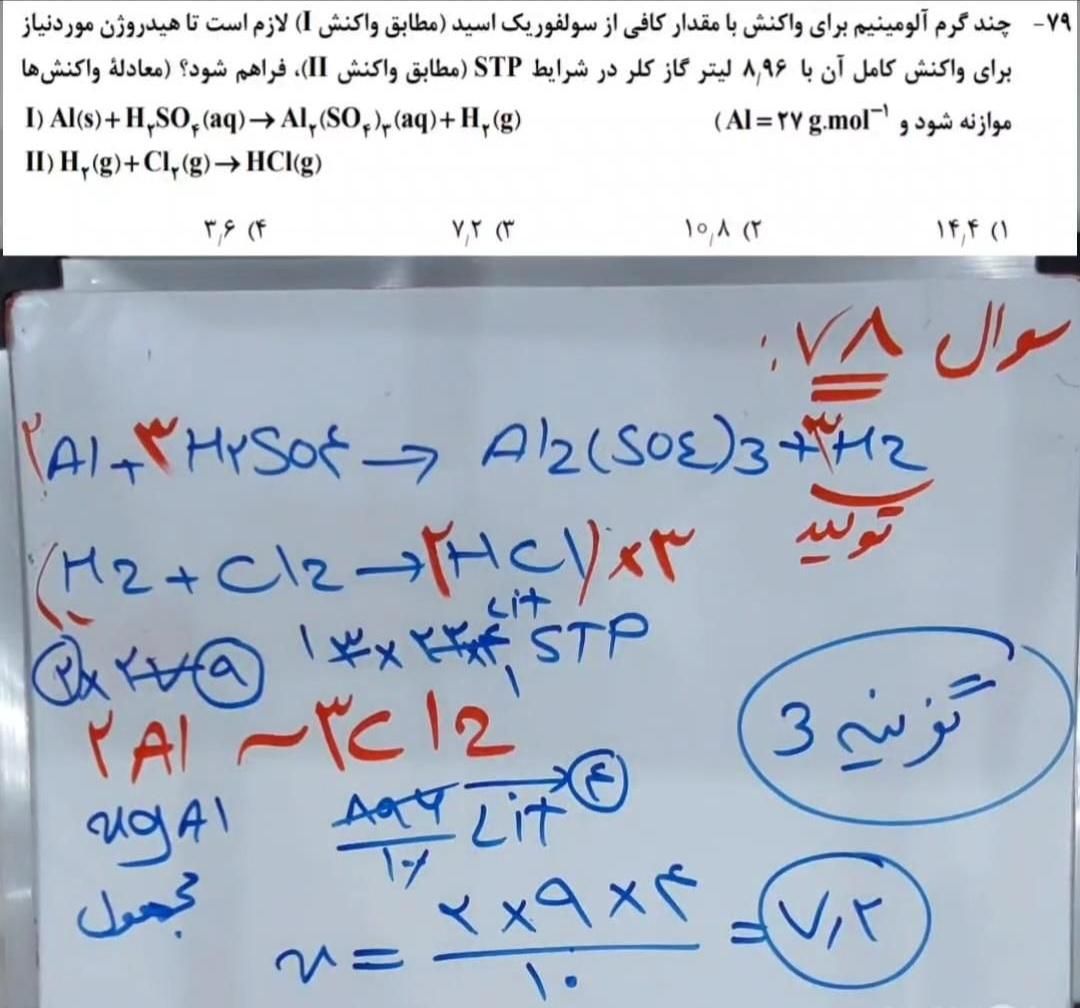 ۷۹- چند گرم آلومینیم برای واکنش با مقدار کافی از سولفوریک اسید (مطابق واکنش I) لازم است تا هیدروژن موردنیاز
برای واکنش کامل آن با ۸٫۹۶ لیتر گاز کلر در شرایط STP (مطابق واکنش II)، فراهم شود؟ (معادلۀ واکنش‌ها
موازنه شود و Al = ۲۷ g.mol⁻¹)
I) Al(s) + H₂SO₄(aq) → Al₂(SO₄)₃(aq) + H₂(g)
II) H₂(g) + Cl₂(g) → HCl(g)
۱) ۱۴٫۴ ۲) ۱۰٫۸ ۳) ۷٫۲ ۴) ۳٫۶
سوال ۷۸:
۲Al + ۳H۲SO۴ → Al2(SO٤)3 + ۳H2
تولید
(H2 + Cl2 → ۲HCl) × ۳
۲ × ۲۷ ۹ ۱ ۳ × ۲۲٫۴ ۱ Lit STP
۲Al ~ ۳Cl2
گزینه 3
xgAl ۸۹۶/۱۰۰ Lit → ۴
مجهول
x = ۲ × ۹ × ۴ / ۱۰ = ۷٫۲